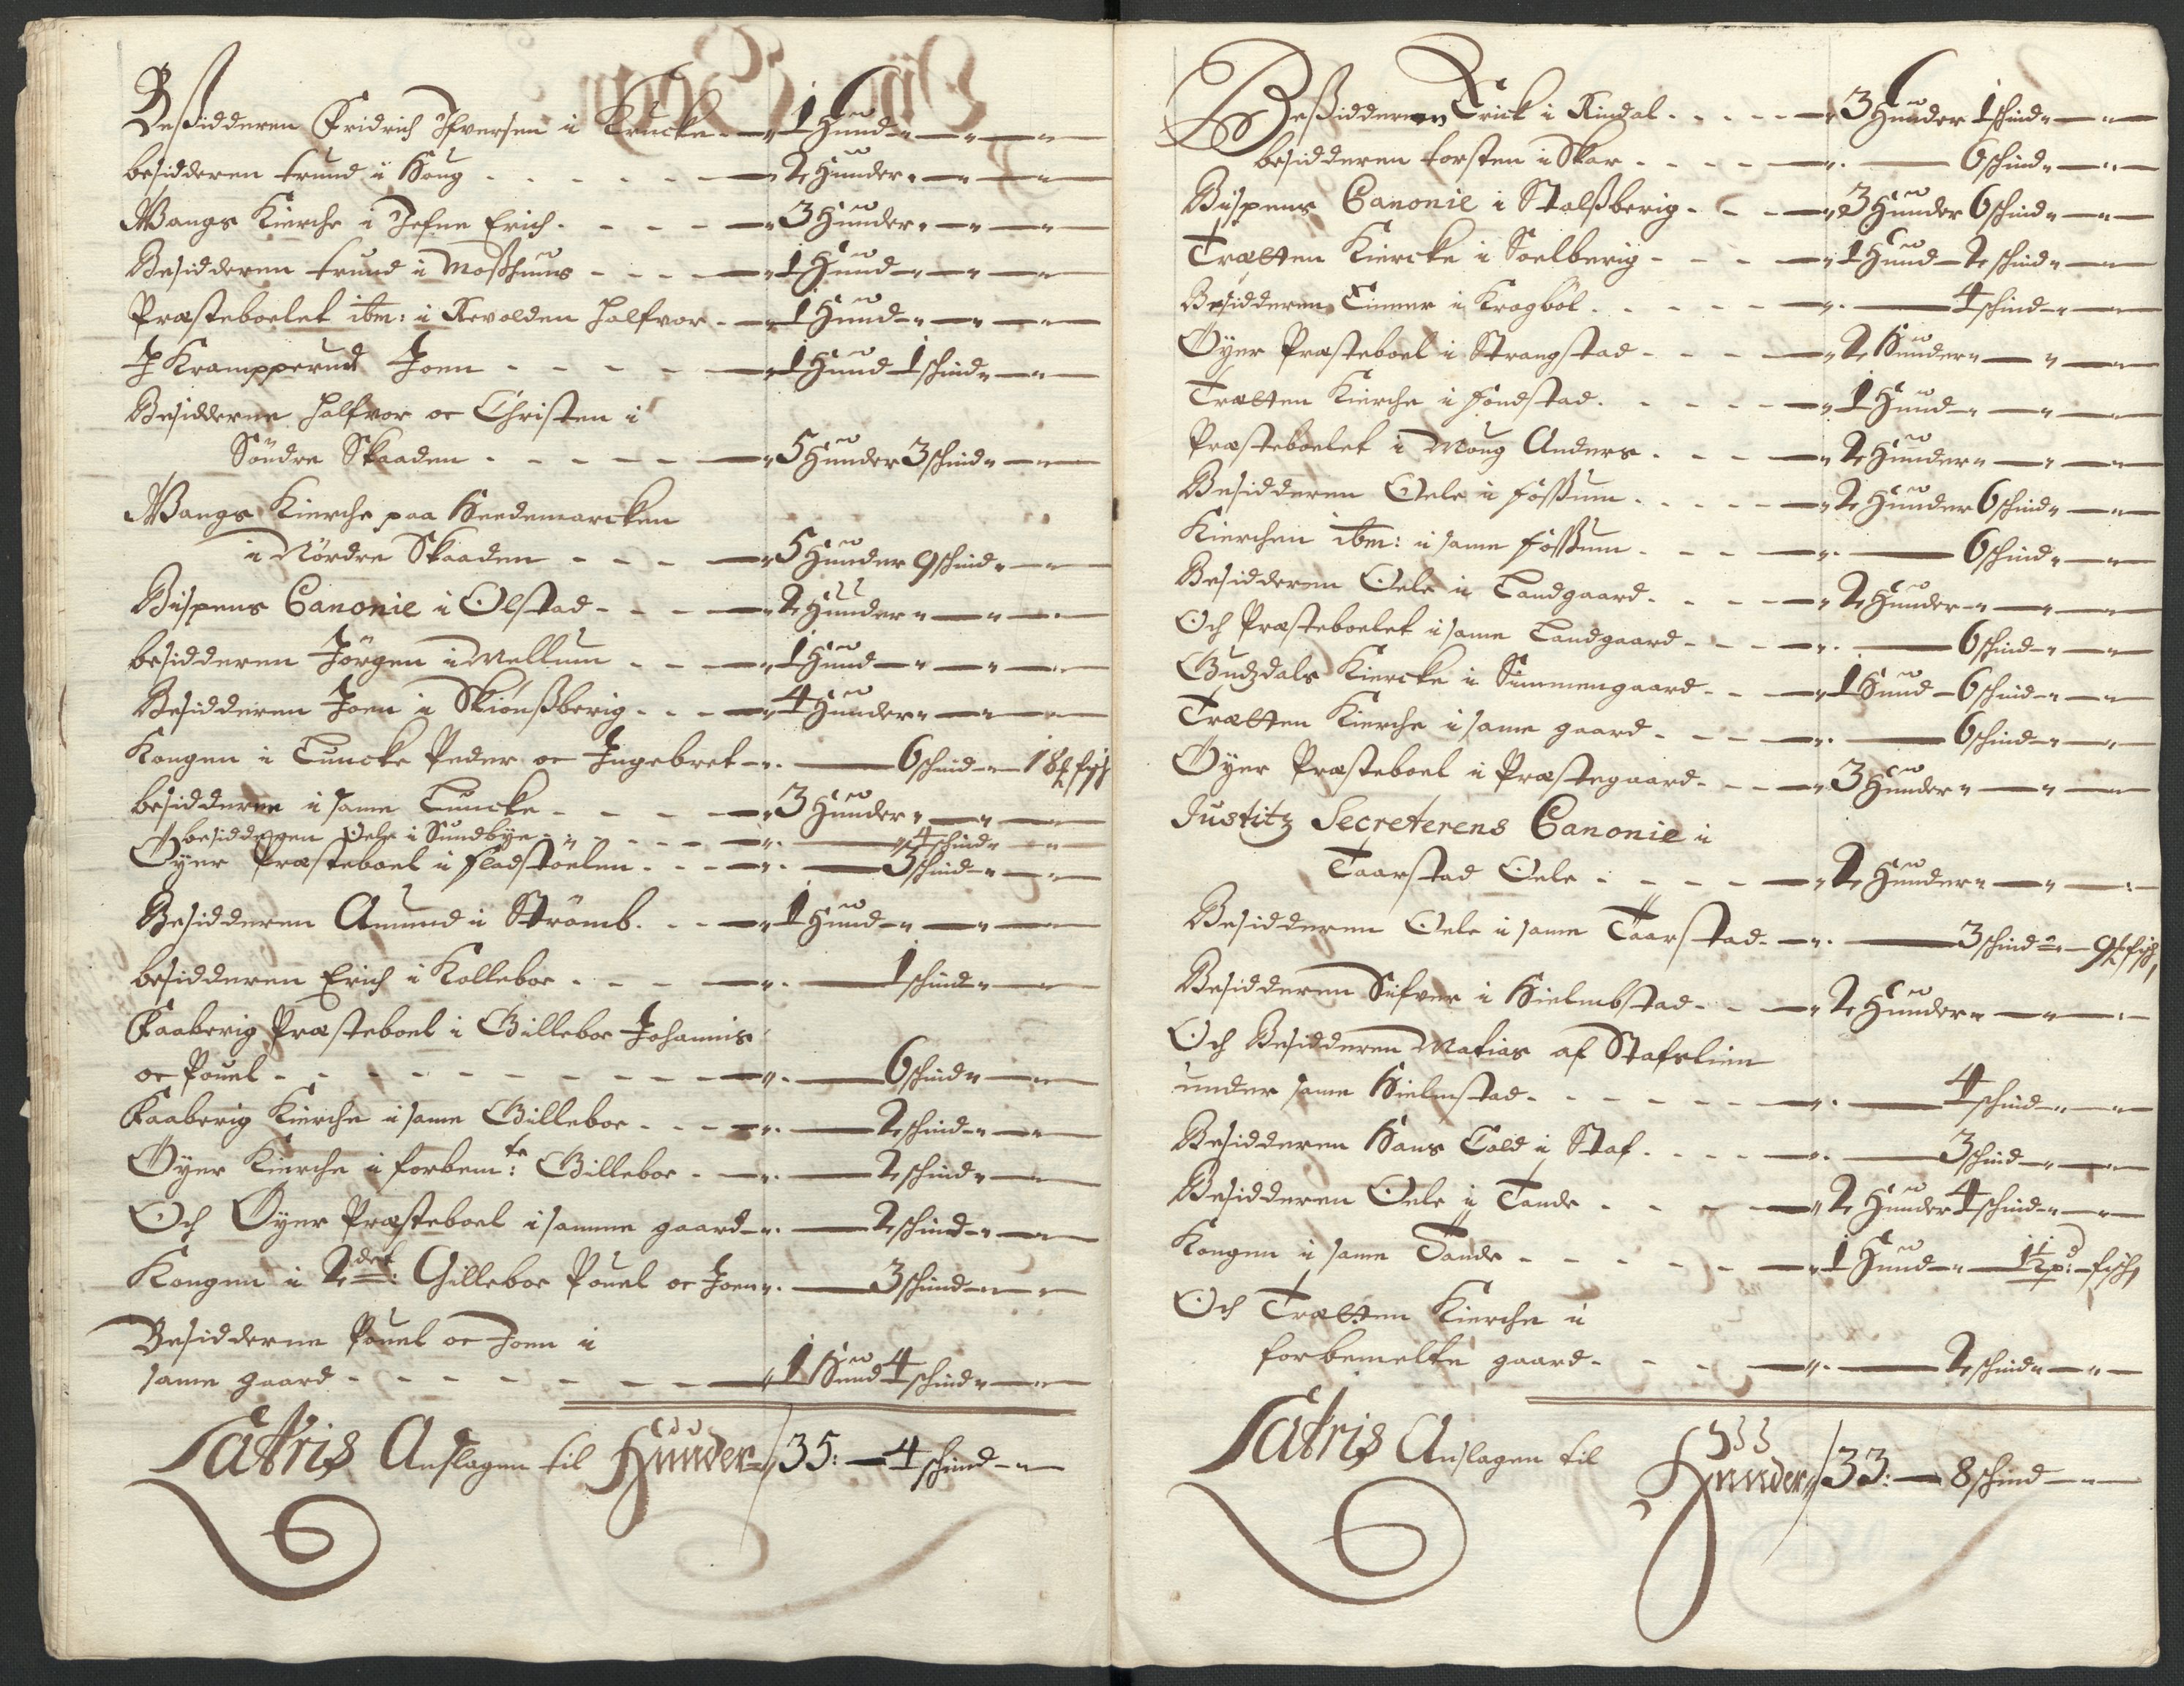 Beßidderen Fridrich Ifversen i Krucke - 1 Hund
besidderen trund i Houg - 2 Hunder
Wangs Kierche i Jefne Erich - 3 Hunder
Besidderen trund i Moßhuus - 1 Hund
Præsteboelet ibm: i Revolden Halfvor - 1 Hund
I Krampperud Joen - 1 Hund 1 schind
Besidderne Halfvor oc Christen i
Söndre Skaaden - 5 Hunder 3 schind
Wangs Kierche paa Heedemarcken
i Nördre Skaaden - 5 Hunder 9 schind
Bispens Canonie i Olstad - 2 Hunder
besidderen Jörgen i Mellum - 1 Hund
Besidderen Joen i Skiönßberig - 4 Hunder
Kongen i Luncke Peder oc Ingebret - 6 schind - 18 ℔ fisk
besidderne i same Luncke - 3 Hunder
besidderen Oele i Sundbÿe - 4 schind
Öyer Præsteboel i Fladstoelen - 3 schind
Besidderen Amund i Strömb - 1 Hund
besidderen Erich i Kolleboe - 1 schind
Faaberig Præsteboel i Gilleboe Johannis
oc Pouel - 6 schind
Faaberig Kierche i same Gilleboe - 2 schind
Öyer Kierche i forbemte: Gilleboe - 2 schind
Och Öyer Præsteboel i samme gaard - 2 schind
Kongen i 2det: Gilleboe Pouel oc Joen - 3 schind
Besidderne Pouel oc Joen i
same gaard - 1 Hund 4 schind
Latris Anslagen til Hunder 35: - 4 schind
Beßidderen Erick i Rindal - 3 Hunder 1 schind
besidderen torsten i Skar - 6 schind
Bispens Canonie i Stalßberig - 3 Hunder 6 schind
Trætten Kiercke i Soelberig - 1 Hund - 2 schind
Besidderen Einner i Kragböl - 4 schind
Öyer Præsteboel i Strangstad - 2 Hunder
Trætten Kierche i Fondstad - 1 Hund
Præsteboelet i Moug Anders - 2 Hunder
Besidderen Oele i Foßum - 2 Hunder 6 schind
Kierchen ibm: i same Foßum - 6 schind
Besidderen Oele i Landgaard - 2 Hunder
Och Præsteboelet i same Landgaard - 6 schind
Gudzdals Kiercke i Simmengaard - 1 Hund - 6 schind
Trætten Kierche i same gaard - 6 schind
Öyer Præsteboel i Præstegaard - 3 Hunder
Justitz Secreterens Canonie i
Taarstad Oele - 2 Hunder
Besidderen Oele i same Taarstad - 3 schind - 9 ℔ fisk
Besidderen Sifver i Hielmbstad - 2 Hunder
Och Besidderen Matias af Stafslien
under same Hielmstad - 4 schind
Besidderen Hans Cold i Staf - 3 schind
Besidderen Oele i Tande - 2 Hunder 4 schind
Kongen i same Tande - 1 Hund - 1½ pd: fisk
Och Trætten Kierche i
forbemelte gaard - 2 schind
Latris Anslagen til Hunder 33: - 8 schind